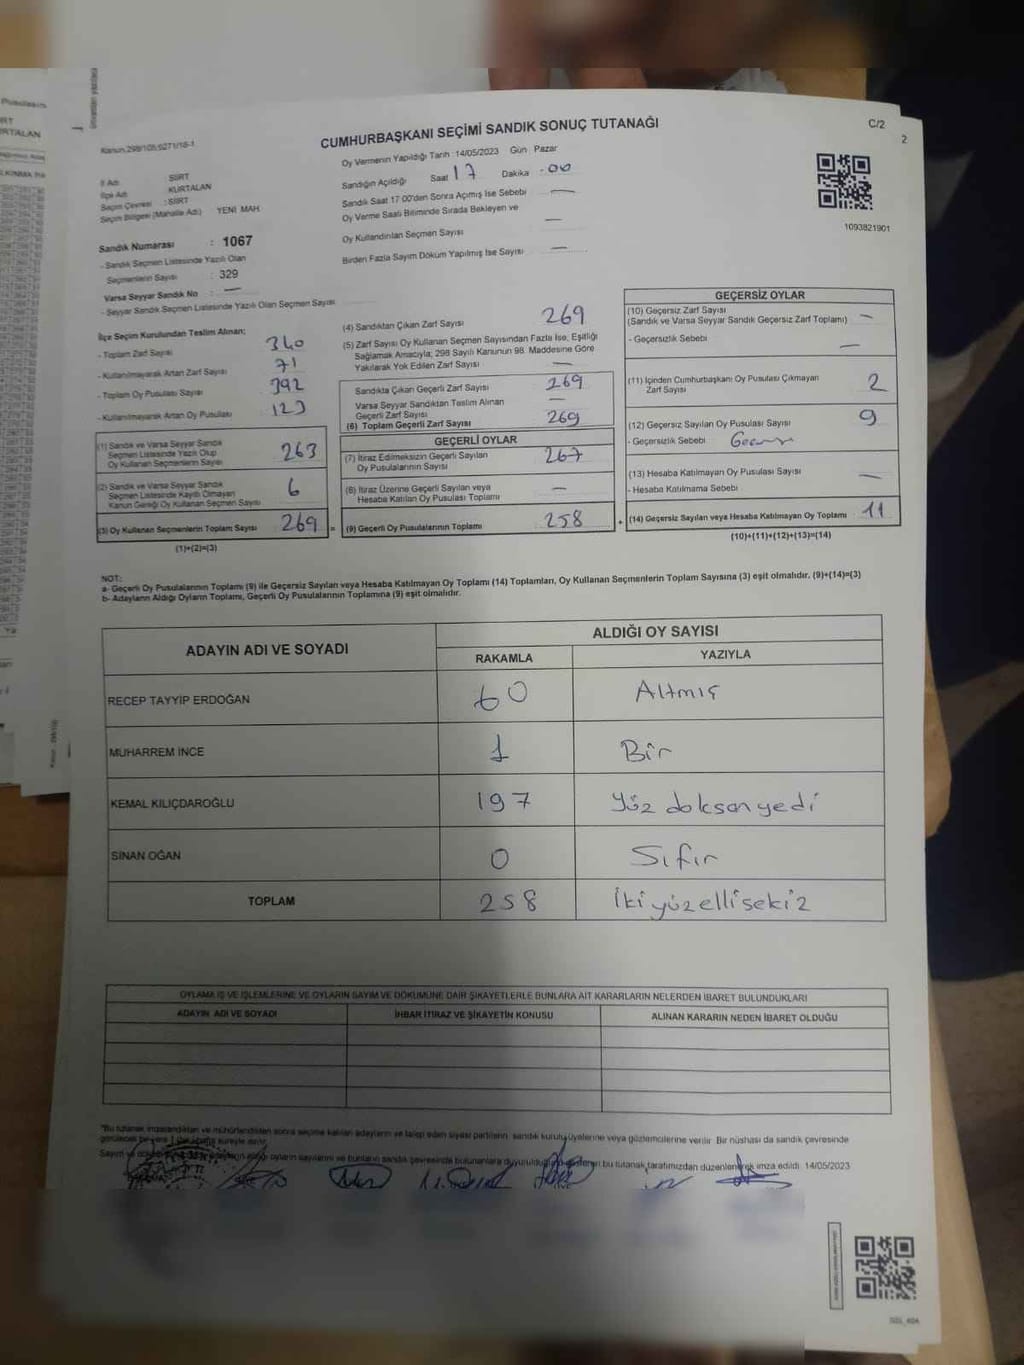 CUMHURBAŞKANI SEÇİMİ SANDIK SONUÇ TUTANAĞI
C/2
2
Oy Vermenin Yapıldığı Tarih :14/05/2023 Gün Pazar
Sandığın Açıldığı Saat 17 Dakika 00
Sandık Saat 17:00'den Sonra Açılmış İse Sebebi —
Oy Verme Saati Bitiminde Sırada Bekleyen ve
Oy Kullandırılan Seçmen Sayısı —
Birden Fazla Sayım Döküm Yapılmış İse Sayısı —
İl Adı SİİRT
İlçe Adı KURTALAN
Seçim Çevresi : SİİRT
Seçim Bölgesi (Mahalle Adı) YENİ MAH.
1093821901
Sandık Numarası : 1067
- Sandık Seçmen Listesinde Yazılı Olan
Seçmenlerin Sayısı : 329
Varsa Seyyar Sandık No : —
- Seyyar Sandık Seçmen Listesinde Yazılı Olan Seçmen Sayısı
İlçe Seçim Kurulundan Teslim Alınan;
- Toplam Zarf Sayısı 340
- Kullanılmayarak Artan Zarf Sayısı 71
- Toplam Oy Pusulası Sayısı 392
- Kullanılmayarak Artan Oy Pusulası 123
(1) Sandık ve Varsa Seyyar Sandık
Seçmen Listesinde Yazılı Olup
Oy Kullanan Seçmenlerin Sayısı 263
(2) Sandık ve Varsa Seyyar Sandık
Seçmen Listesinde Kayıtlı Olmayan
Kanun Gereği Oy Kullanan Seçmen Sayısı 6
(3) Oy Kullanan Seçmenlerin Toplam Sayısı 269 =
(1)+(2)=(3)
(4) Sandıktan Çıkan Zarf Sayısı 269
(5) Zarf Sayısı Oy Kullanan Seçmen Sayısından Fazla İse, Eşitliği
Sağlamak Amacıyla; 298 Sayılı Kanunun 98. Maddesine Göre
Yakılarak Yok Edilen Zarf Sayısı —
Sandıkta Çıkan Geçerli Zarf Sayısı 269
Varsa Seyyar Sandıktan Teslim Alınan
Geçerli Zarf Sayısı —
(6) Toplam Geçerli Zarf Sayısı 269
GEÇERLİ OYLAR
(7) İtiraz Edilmeksizin Geçerli Sayılan
Oy Pusulalarının Sayısı 267
(8) İtiraz Üzerine Geçerli Sayılan veya
Hesaba Katılan Oy Pusulası Toplamı —
(9) Geçerli Oy Pusulalarının Toplamı 258 +
GEÇERSİZ OYLAR
(10) Geçersiz Zarf Sayısı
(Sandık ve Varsa Seyyar Sandık Geçersiz Zarf Toplamı) —
- Geçersizlik Sebebi —
(11) İçinden Cumhurbaşkanı Oy Pusulası Çıkmayan
Zarf Sayısı 2
(12) Geçersiz Sayılan Oy Pusulası Sayısı 9
- Geçersizlik Sebebi
(13) Hesaba Katılmayan Oy Pusulası Sayısı —
- Hesaba Katılmama Sebebi
(14) Geçersiz Sayılan veya Hesaba Katılmayan Oy Toplamı 11
(10)+(11)+(12)+(13)=(14)
NOT:
a- Geçerli Oy Pusulalarının Toplamı (9) ile Geçersiz Sayılan veya Hesaba Katılmayan Oy Toplamı (14) Toplamları, Oy Kullanan Seçmenlerin Toplam Sayısına (3) eşit olmalıdır. (9)+(14)=(3)
b- Adayların Aldığı Oyların Toplamı, Geçerli Oy Pusulalarının Toplamına (9) eşit olmalıdır.
ADAYIN ADI VE SOYADI
ALDIĞI OY SAYISI
RAKAMLA YAZIYLA
RECEP TAYYİP ERDOĞAN 60 Altmış
MUHARREM İNCE 1 Bir
KEMAL KILIÇDAROĞLU 197 Yüz doksan yedi
SİNAN OĞAN 0 Sıfır
TOPLAM 258 İki yüz elli sekiz
OYLAMA İŞ VE İŞLEMLERİNE VE OYLARIN SAYIM VE DÖKÜMÜNE DAİR ŞİKAYETLERLE BUNLARA AİT KARARLARIN NELERDEN İBARET BULUNDUKLARI
ADAYIN ADI VE SOYADI İHBAR İTİRAZ VE ŞİKAYETİN KONUSU ALINAN KARARIN NEDEN İBARET OLDUĞU
*Bu tutanak imzalandıktan ve mühürlendikten sonra seçime katılan adayların ve talep eden siyasi partilerin sandık kurulu üyelerine veya gözlemcilerine verilir. Bir nüshası da sandık çevresinde
bu tutanak tarafımızdan düzenlenerek imza edildi. 14/05/2023